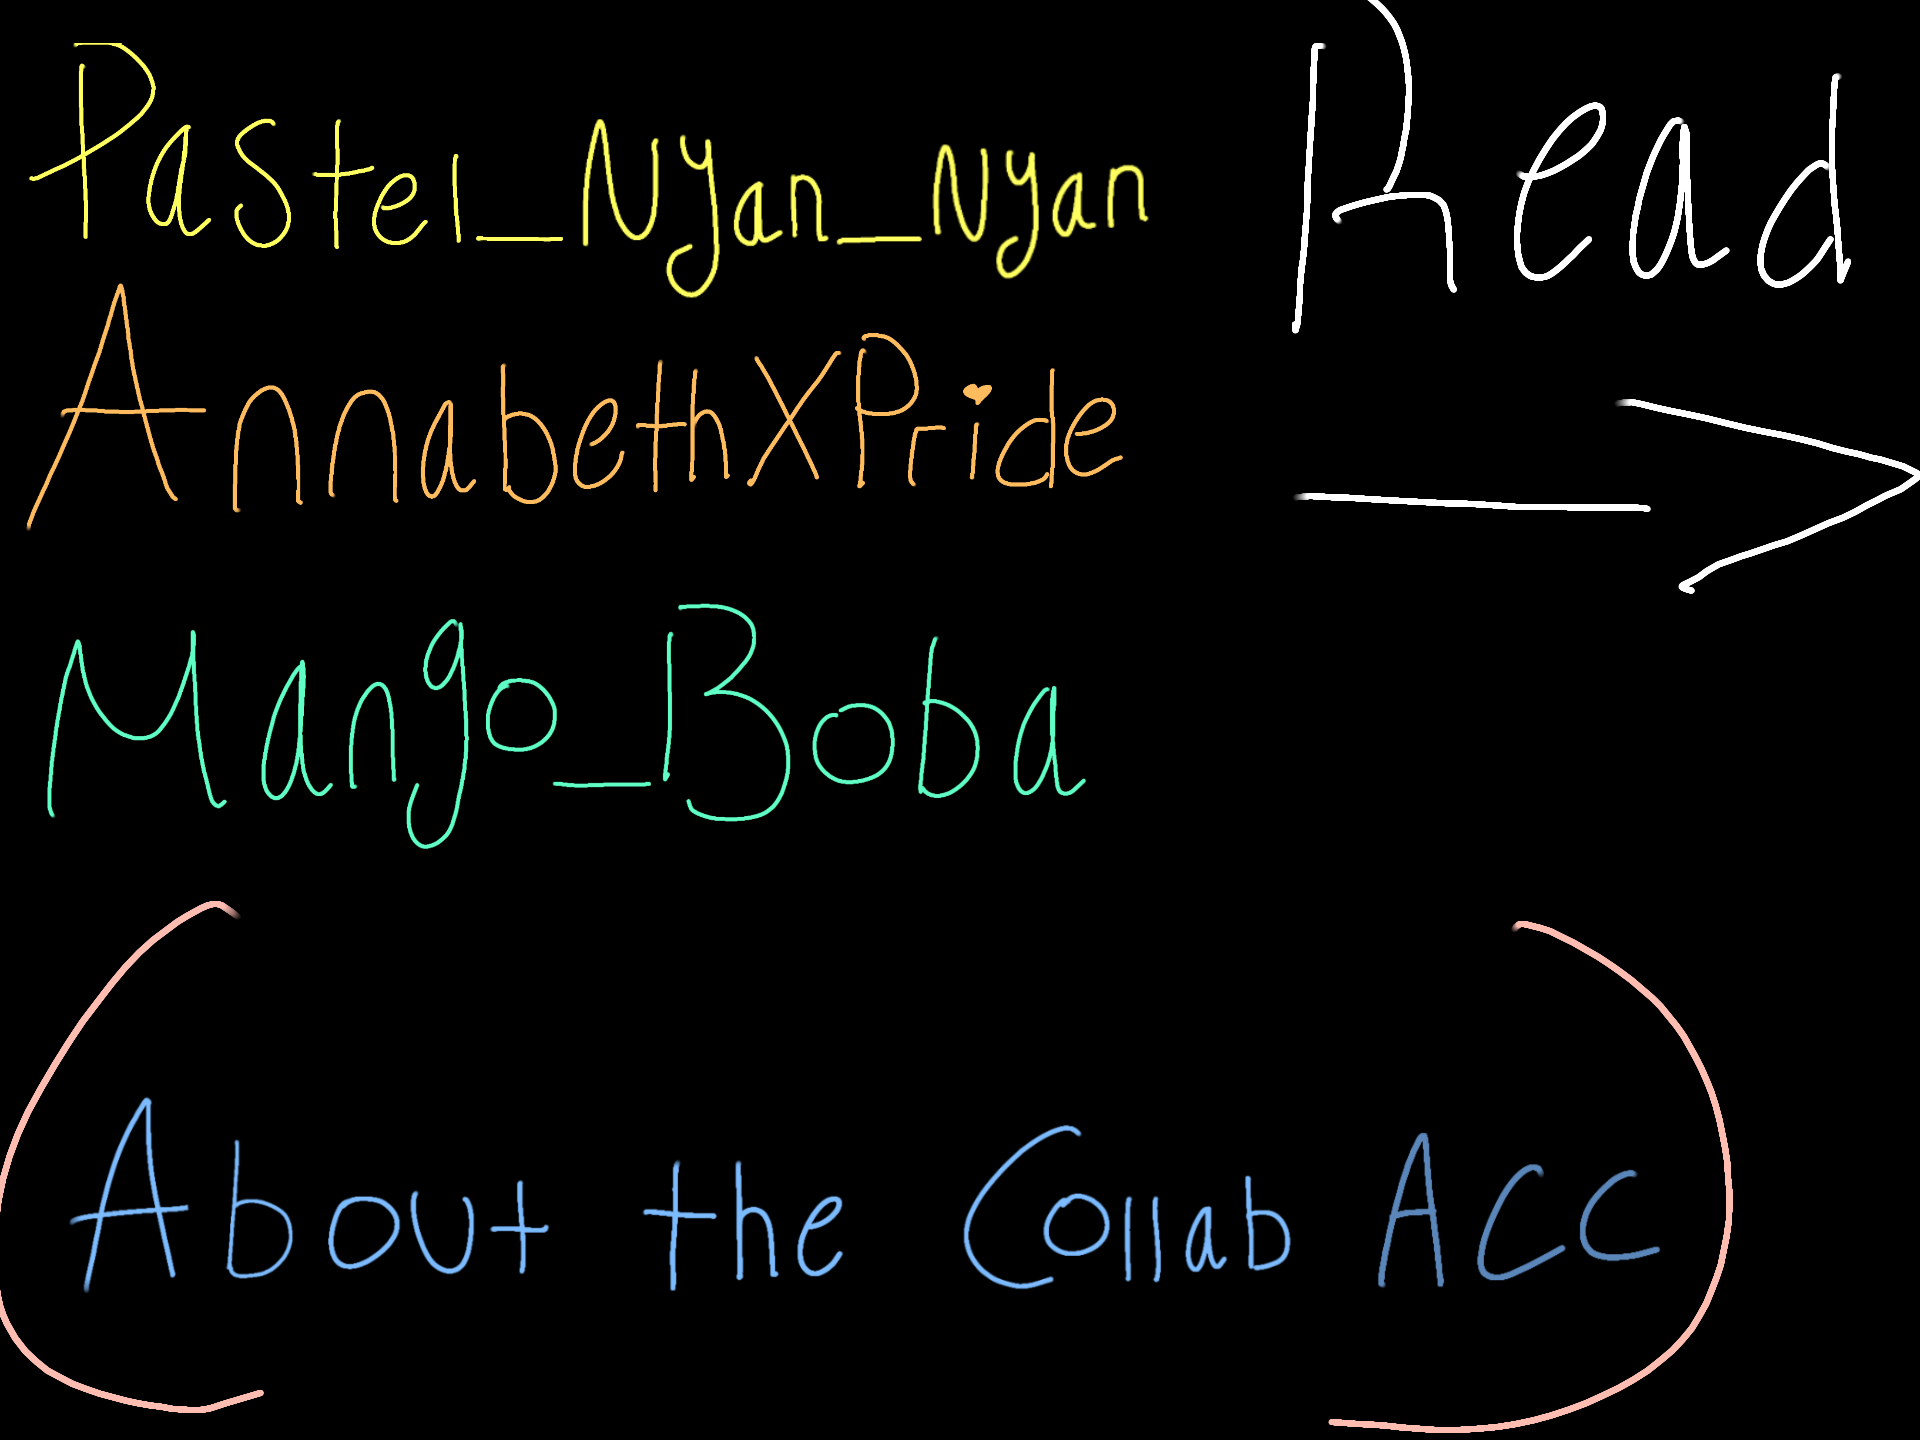 Pastel_Nyan_Nyan
Read
AnnabethXPride
Mango_Boba
(About the Collab Acc)